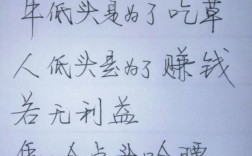 牛低头是为了吃草
人低头是为了赚钱
若无利益